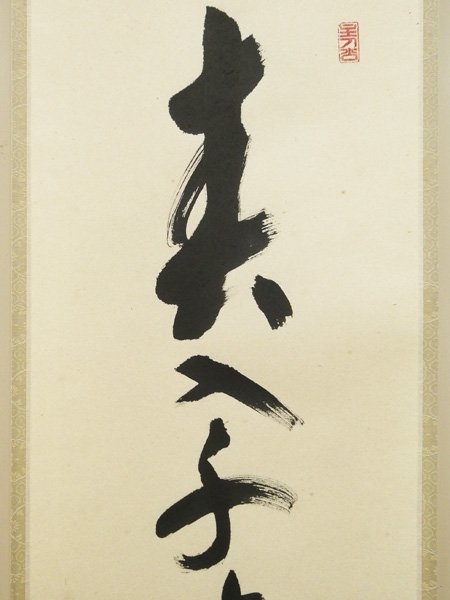 春入千